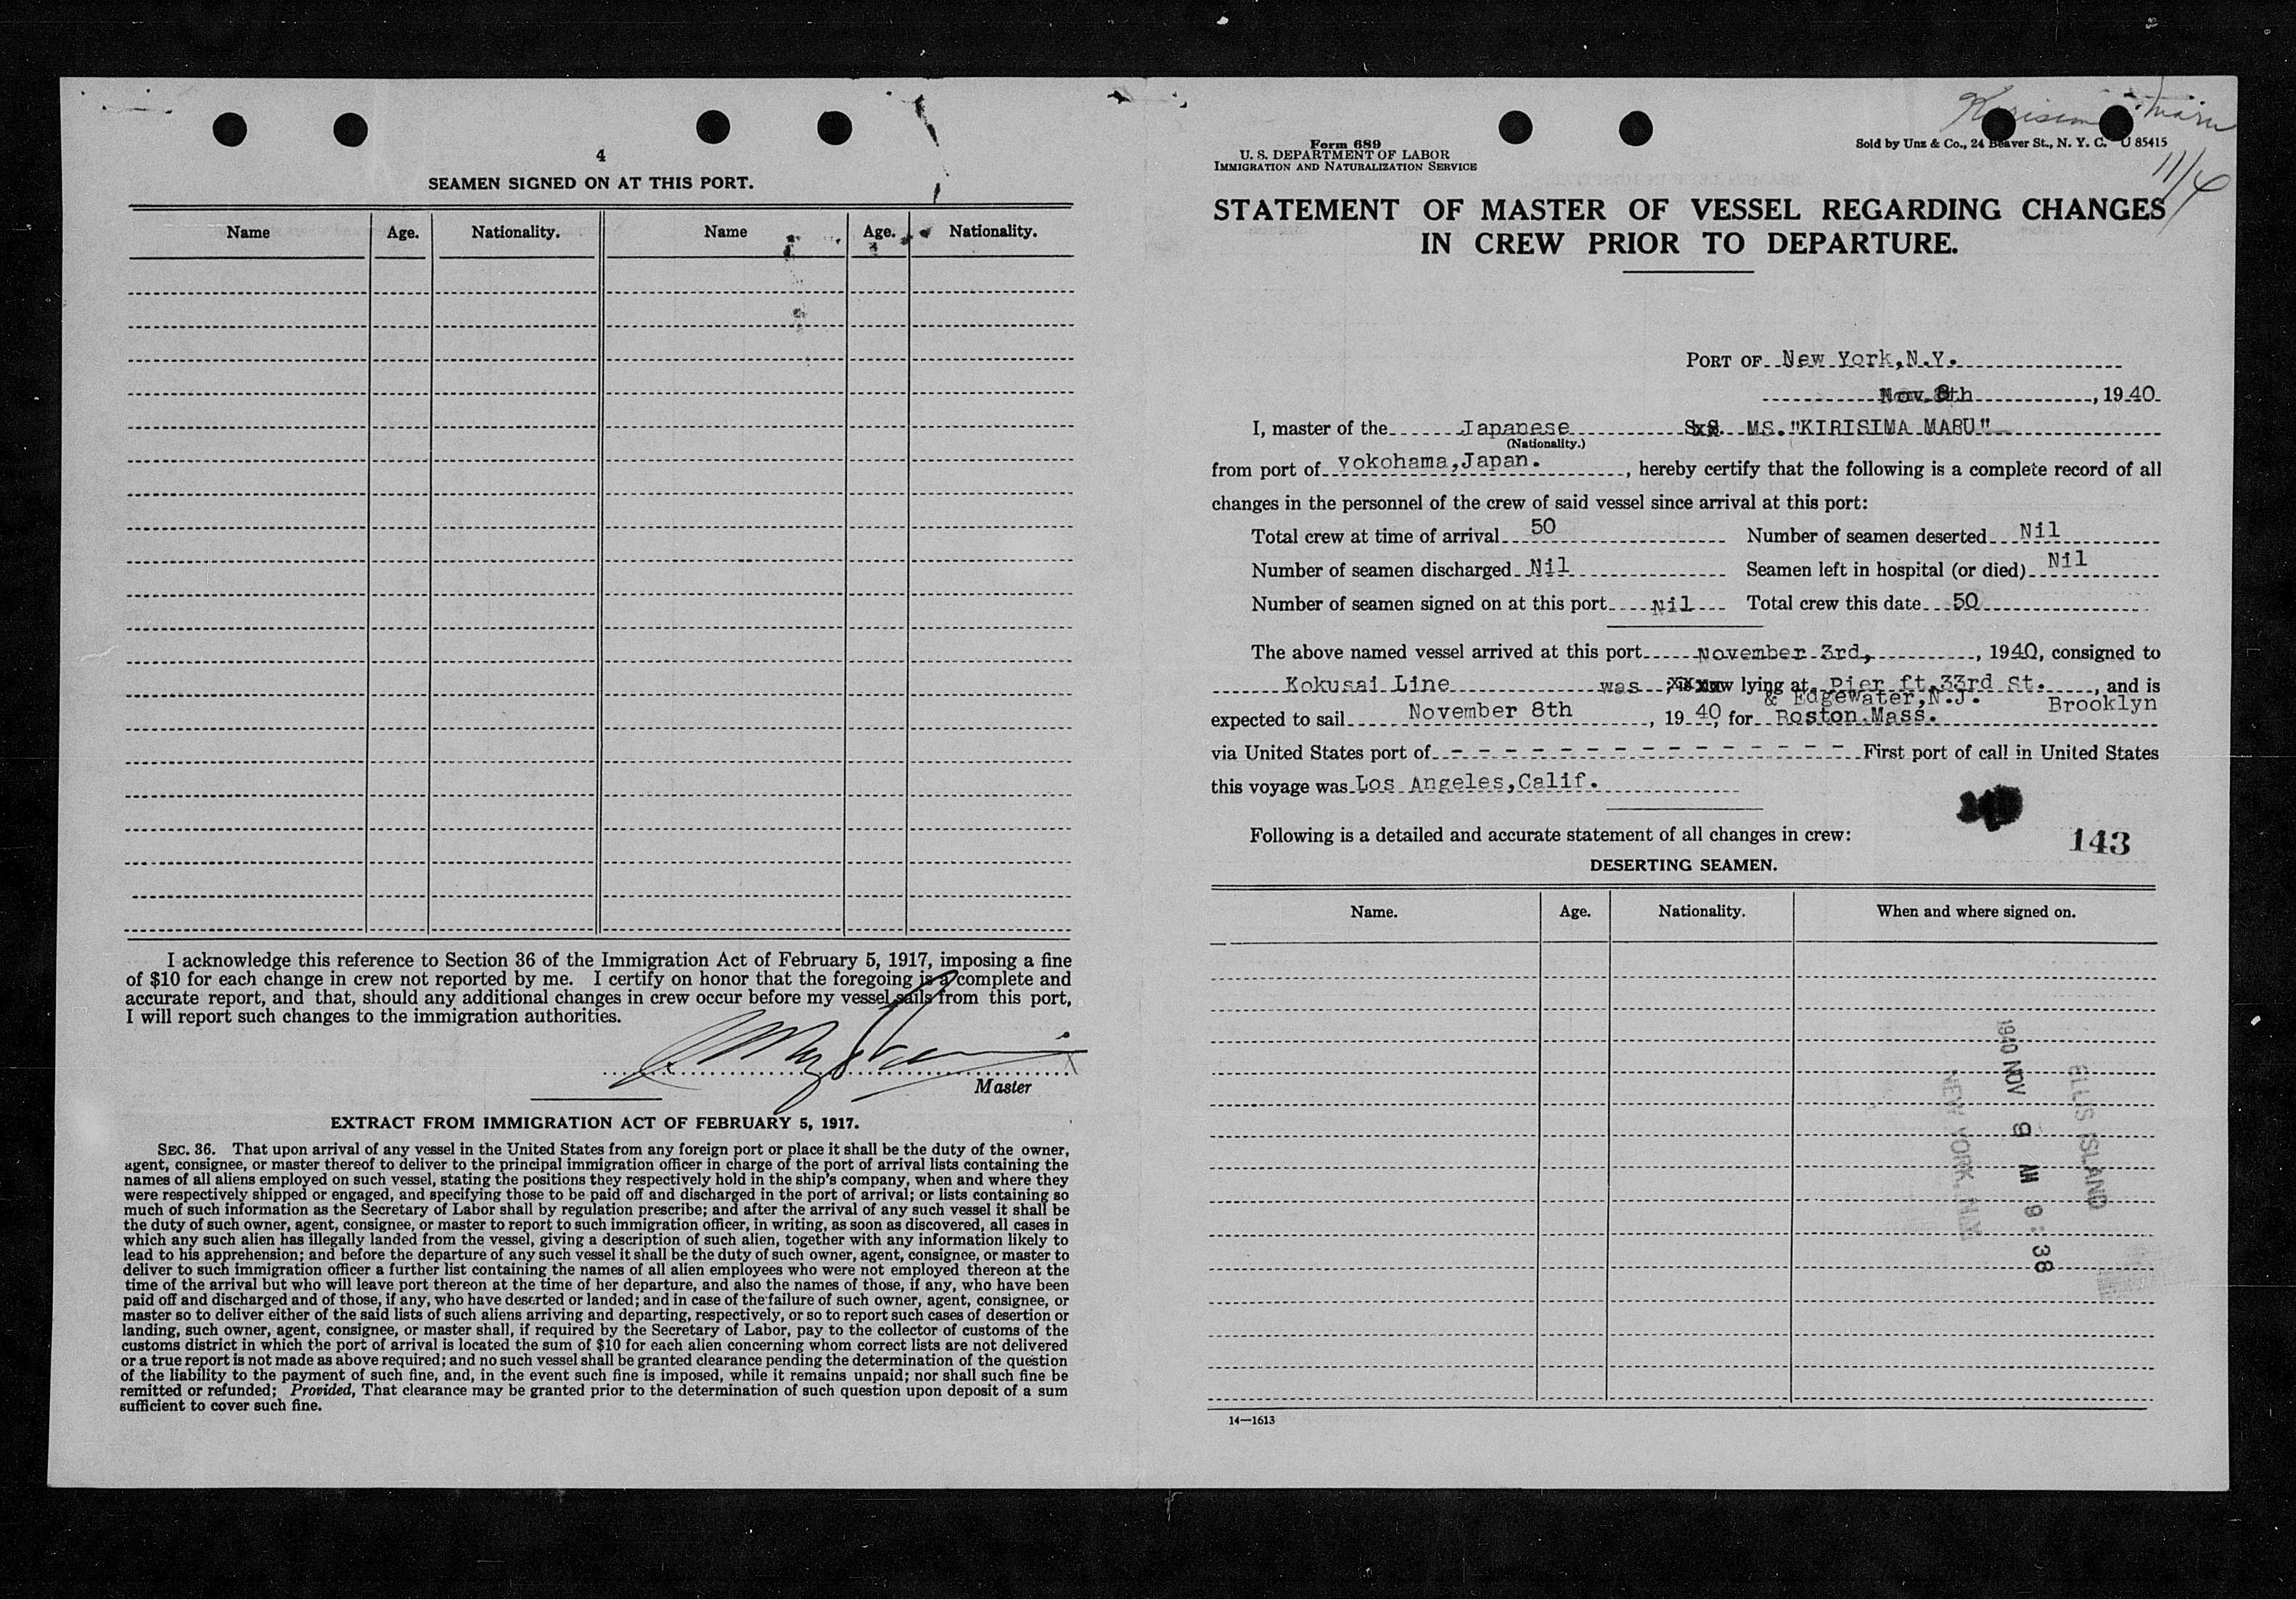 4
SEAMEN SIGNED ON AT THIS PORT.
Name Age. Nationality. Name Age. Nationality.
I acknowledge this reference to Section 36 of the Immigration Act of February 5, 1917, imposing a fine
of $10 for each change in crew not reported by me. I certify on honor that the foregoing is a complete and
accurate report, and that, should any additional changes in crew occur before my vessel sails from this port,
I will report such changes to the immigration authorities.
Master
EXTRACT FROM IMMIGRATION ACT OF FEBRUARY 5, 1917.
SEC. 36. That upon arrival of any vessel in the United States from any foreign port or place it shall be the duty of the owner,
agent, consignee, or master thereof to deliver to the principal immigration officer in charge of the port of arrival lists containing the
names of all aliens employed on such vessel, stating the positions they respectively hold in the ship's company, when and where they
were respectively shipped or engaged, and specifying those to be paid off and discharged in the port of arrival; or lists containing so
much of such information as the Secretary of Labor shall by regulation prescribe; and after the arrival of any such vessel it shall be
the duty of such owner, agent, consignee, or master to report to such immigration officer, in writing, as soon as discovered, all cases in
which any such alien has illegally landed from the vessel, giving a description of such alien, together with any information likely to
lead to his apprehension; and before the departure of any such vessel it shall be the duty of such owner, agent, consignee, or master to
deliver to such immigration officer a further list containing the names of all alien employees who were not employed thereon at the
time of the arrival but who will leave port thereon at the time of her departure, and also the names of those, if any, who have been
paid off and discharged and of those, if any, who have deserted or landed; and in case of the failure of such owner, agent, consignee, or
master so to deliver either of the said lists of such aliens arriving and departing, respectively, or so to report such cases of desertion or
landing, such owner, agent, consignee, or master shall, if required by the Secretary of Labor, pay to the collector of customs of the
customs district in which the port of arrival is located the sum of $10 for each alien concerning whom correct lists are not delivered
or a true report is not made as above required; and no such vessel shall be granted clearance pending the determination of the question
of the liability to the payment of such fine, and, in the event such fine is imposed, while it remains unpaid; nor shall such fine be
remitted or refunded; Provided, That clearance may be granted prior to the determination of such question upon deposit of a sum
sufficient to cover such fine.
Kirisima Maru
11/4
Form 689
U. S. DEPARTMENT OF LABOR
IMMIGRATION AND NATURALIZATION SERVICE
Sold by Unz & Co., 24 Beaver St., N. Y. C. U 85415
STATEMENT OF MASTER OF VESSEL REGARDING CHANGES
IN CREW PRIOR TO DEPARTURE.
PORT OF New York,N.Y.
Nov.8th, 1940
I, master of the Japanese S.S. MS."KIRISIMA MARU"
(Nationality.)
from port of Yokohama,Japan., hereby certify that the following is a complete record of all
changes in the personnel of the crew of said vessel since arrival at this port:
Total crew at time of arrival 50 Number of seamen deserted Nil
Number of seamen discharged Nil Seamen left in hospital (or died) Nil
Number of seamen signed on at this port Nil Total crew this date 50
The above named vessel arrived at this port November 3rd,, 1940, consigned to
Kokusai Line was ; is now lying at Pier ft.33rd St., and is
& Edgewater,N.J. Brooklyn
expected to sail November 8th, 1940, for Boston.Mass.
via United States port of - - - - - - - - - - - - - - - First port of call in United States
this voyage was Los Angeles,Calif.
Following is a detailed and accurate statement of all changes in crew:
143
DESERTING SEAMEN.
Name. Age. Nationality. When and where signed on.
ELLIS ISLAND
1940 NOV 9 AM 9:38
NEW YORK, N.Y.
14—1613